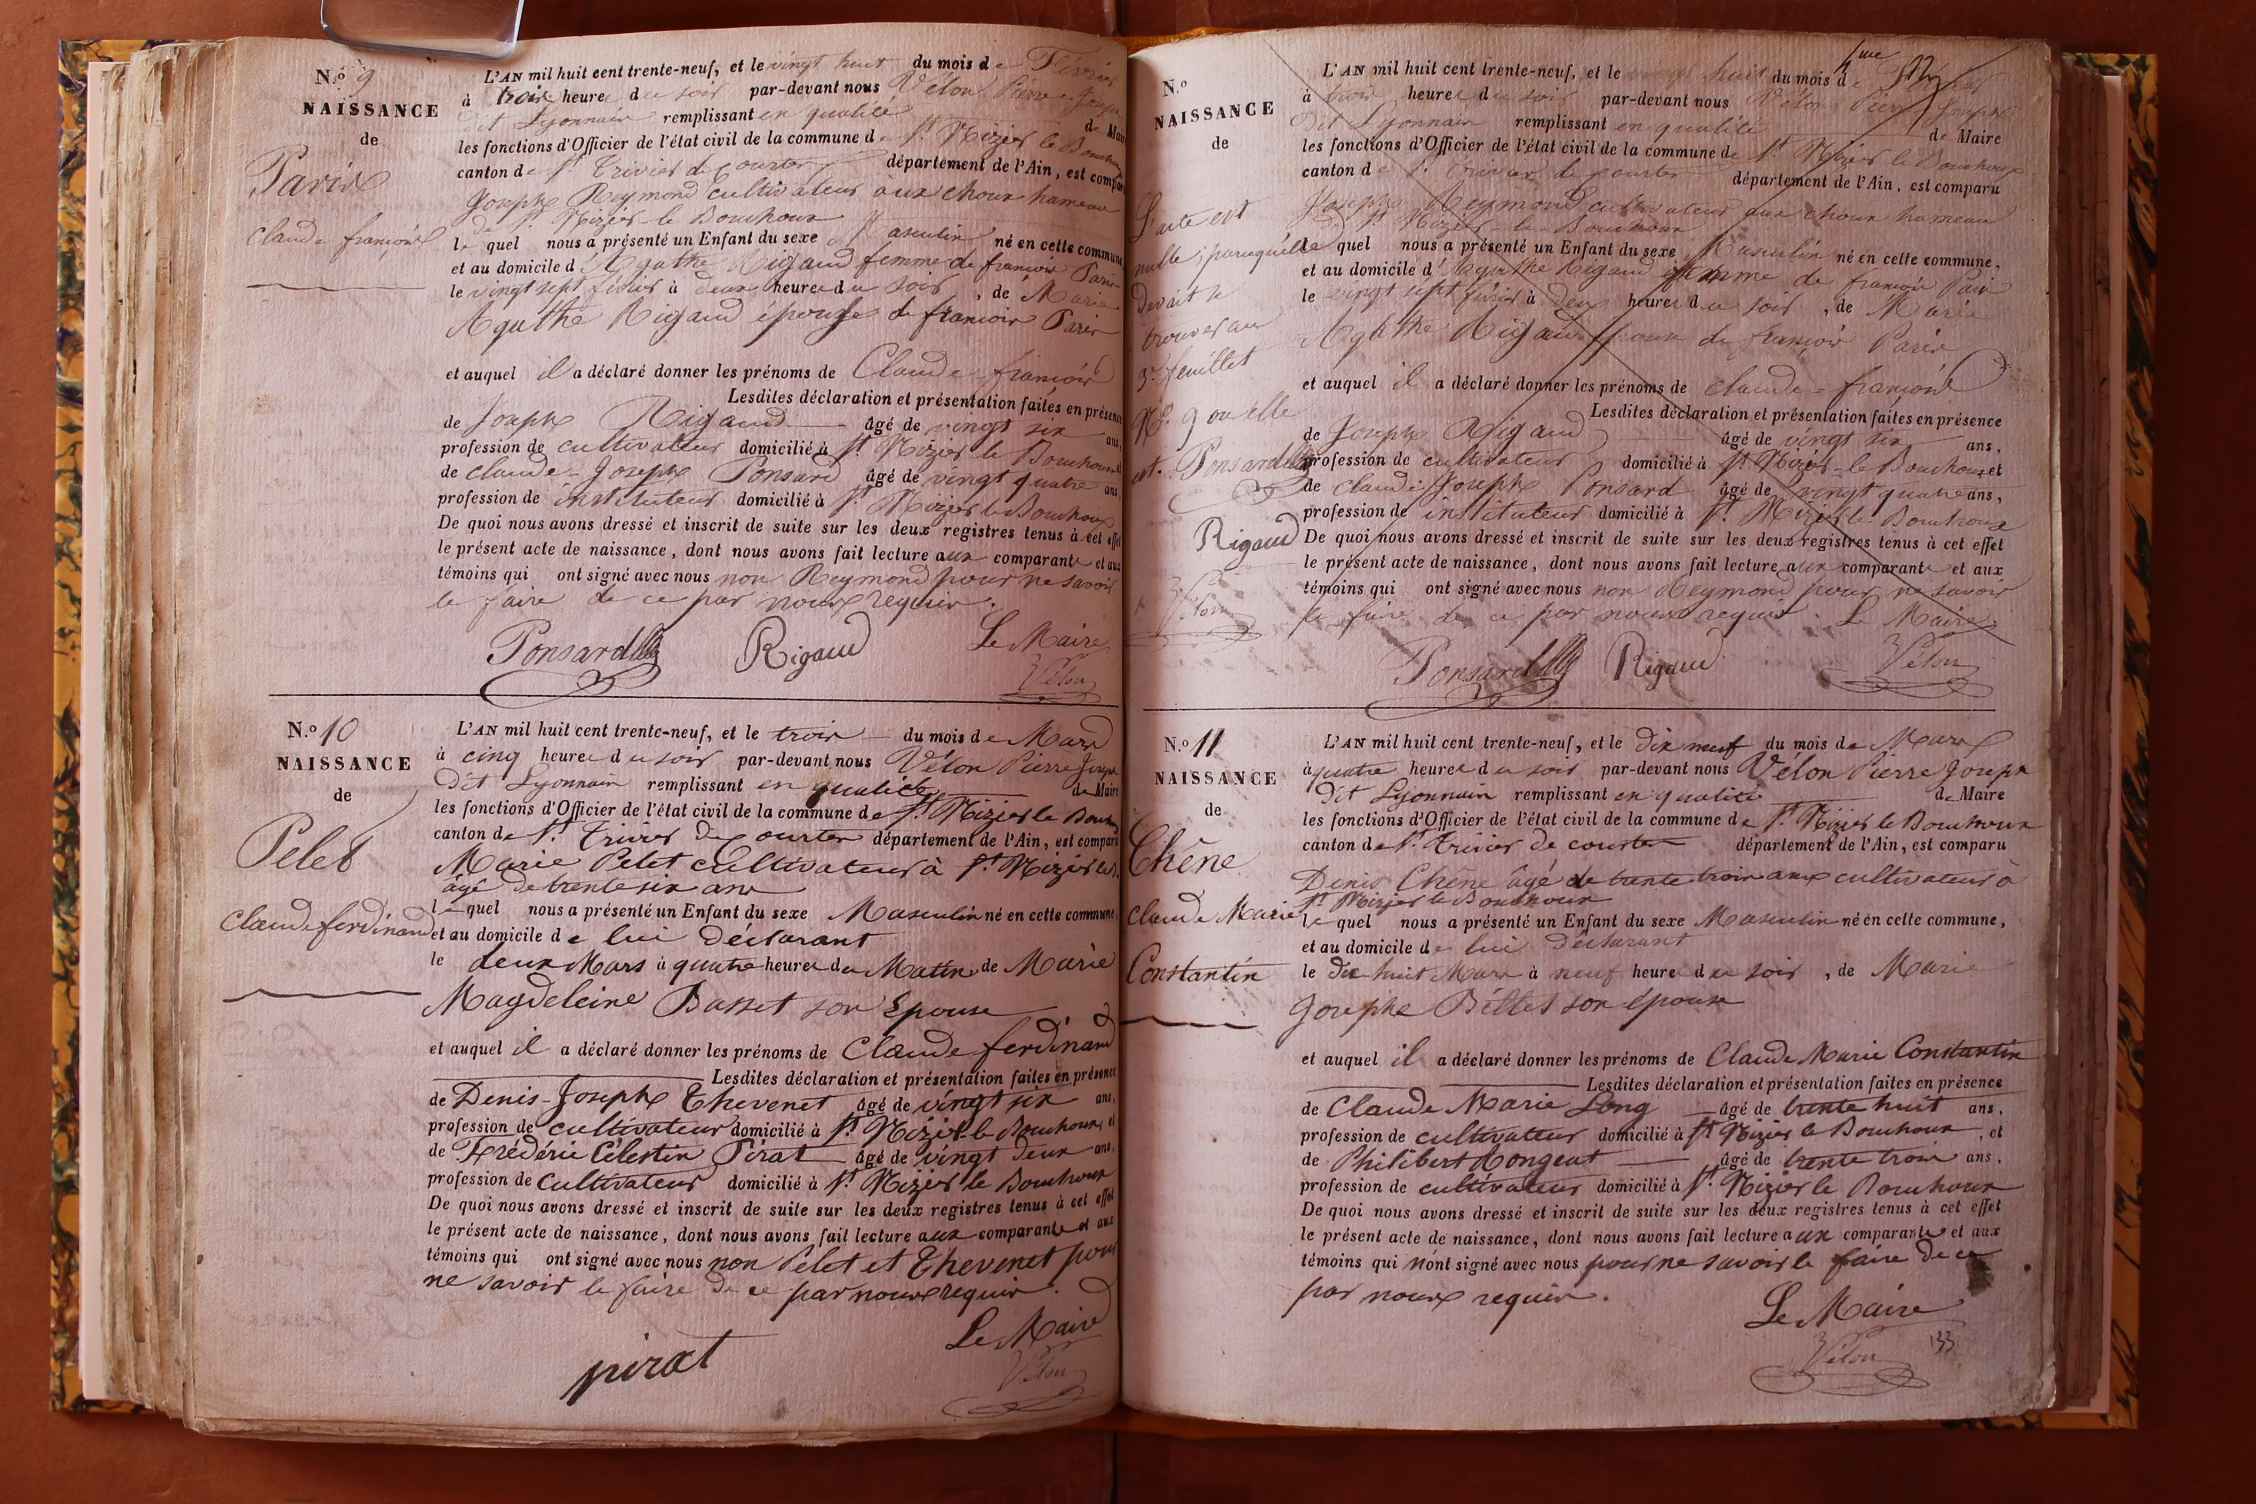 N.o 9
NAISSANCE
de
Paris
Claude françois
L'AN mil huit cent trente-neuf, et le vingt huit du mois de Février
à trois heures du soir par-devant nous Vélon Pierre Joseph
Dit Lyonnais remplissant en qualité de Maire
les fonctions d'Officier de l'état civil de la commune de St. Nizier le Bouchoux
canton de St. Trivier de Courtes département de l'Ain, est comparu
Joseph Reymond cultivateur aux choux hameau
de St. Nizier le Bouchoux
lequel nous a présenté un Enfant du sexe Masculin né en cette commune
et au domicile d'Agathe Rigaud femme de françois Paris
le vingt sept févier à deux heures du soir, de Marie
Agathe Rigaud épouse de françois Paris
et auquel il a déclaré donner les prénoms de Claude françois
Lesdites déclaration et présentation faites en présence
de Joseph Rigaud âgé de vingt six ans,
profession de cultivateur domicilié à St. Nizier le Bouchoux et
de Claude-Joseph Ponsard âgé de vingt quatre ans,
profession de instituteur domicilié à St. Nizier le Bouchoux
De quoi nous avons dressé et inscrit de suite sur les deux registres tenus à cet effet
le présent acte de naissance, dont nous avons fait lecture aux comparants et aux
témoins qui ont signé avec nous non Reymond pour ne savoir
le faire de ce par nous requis.
Ponsard Rigaud Le Maire
Vélon
N.o 10
NAISSANCE
de
Pelet
Claude ferdinand
L'AN mil huit cent trente-neuf, et le trois du mois de Mars
à cinq heures du soir par-devant nous Vélon Pierre Joseph
Dit Lyonnais remplissant en qualité de Maire
les fonctions d'Officier de l'état civil de la commune de St. Nizier le Bouchoux
canton de St. Trivier de Courtes département de l'Ain, est comparu
Marie Pelet cultivateur à St. Nizier le B.
âgé de trente six ans
lequel nous a présenté un Enfant du sexe Masculin né en cette commune,
et au domicile de lui déclarant
le deux Mars à quatre heures du Matin de Marie
Magdeleine Basset son Epouse
et auquel il a déclaré donner les prénoms de Claude ferdinand
Lesdites déclaration et présentation faites en présence
de Denis-Joseph Thevenet âgé de vingt six ans,
profession de cultivateur domicilié à St. Nizier le Bouchoux et
de Frédéric Célestin Pirat âgé de vingt deux ans,
profession de Cultivateur domicilié à St. Nizier le Bouchoux
De quoi nous avons dressé et inscrit de suite sur les deux registres tenus à cet effet
le présent acte de naissance, dont nous avons fait lecture aux comparants et aux
témoins qui ont signé avec nous non Pelet et Thevenet pour
ne savoir le faire de ce par nous requis.
Le Maire
pirat Vélon
4me
N.o
NAISSANCE
de
L'acte est
nulle, parcequ'elle
devait se
trouver au
3e feuillet
No. 9 ou elle
est. Ponsard
Rigaud
Vélon
L'AN mil huit cent trente-neuf, et le vingt huit du mois de Février
à trois heures du soir par-devant nous Vélon Pierre Joseph
Dit Lyonnais remplissant en qualité de Maire
les fonctions d'Officier de l'état civil de la commune de St. Nizier le Bouchoux
canton de St. Trivier de Courtes département de l'Ain, est comparu
Joseph Reymond cultivateur aux choux hameau
de St. Nizier le Bouchoux
lequel nous a présenté un Enfant du sexe Masculin né en cette commune,
et au domicile d'Agathe Rigaud femme de françois Paris
le vingt sept févier à deux heures du soir, de Marie
Agathe Rigaud épouse de françois Paris
et auquel il a déclaré donner les prénoms de Claude-françois
Lesdites déclaration et présentation faites en présence
de Joseph Rigaud âgé de vingt six ans,
profession de cultivateur domicilié à St. Nizier le Bouchoux et
de Claude Joseph Ponsard âgé de vingt quatre ans,
profession de instituteur domicilié à St. Nizier le Bouchoux
De quoi nous avons dressé et inscrit de suite sur les deux registres tenus à cet effet
le présent acte de naissance, dont nous avons fait lecture aux comparants et aux
témoins qui ont signé avec nous non Reymond pour ne savoir
le faire de ce par nous requis. Le Maire
Ponsard Rigaud Vélon
N.o 11
NAISSANCE
de
Chêne
Claude Marie
Constantin
L'AN mil huit cent trente-neuf, et le dix neuf du mois de Mars
à quatre heures du soir par-devant nous Vélon Pierre Joseph
Dit Lyonnais remplissant en qualité de Maire
les fonctions d'Officier de l'état civil de la commune de St. Nizier le Bouchoux
canton de St. Trivier de courtes département de l'Ain, est comparu
Denis Chêne âgé de trente trois ans cultivateur à
St. Nizier le Bouchoux
lequel nous a présenté un Enfant du sexe Masculin né en cette commune,
et au domicile de lui déclarant
le dix huit Mars à neuf heures du soir, de Marie
Josephe Billet son épouse
et auquel il a déclaré donner les prénoms de Claude Marie Constantin
Lesdites déclaration et présentation faites en présence
de Claude Marie Long âgé de trente huit ans,
profession de cultivateur domicilié à St. Nizier le Bouchoux, et
de Philibert Rongeat âgé de trente trois ans,
profession de cultivateur domicilié à St. Nizier le Bouchoux
De quoi nous avons dressé et inscrit de suite sur les deux registres tenus à cet effet
le présent acte de naissance, dont nous avons fait lecture aux comparants et aux
témoins qui n'ont signé avec nous pour ne savoir le faire de ce
par nous requis.
Le Maire
Vélon
133